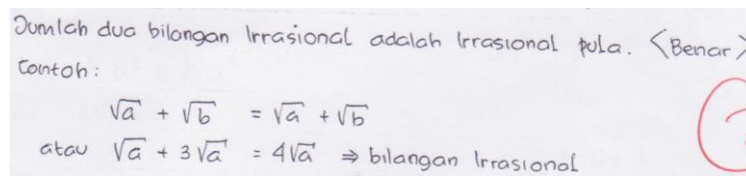 Jumlah dua bilangan Irrasional adalah Irrasional pula. <Benar>
Contoh:
√a + √b = √a + √b
atau √a + 3√a = 4√a ⇒ bilangan Irrasional